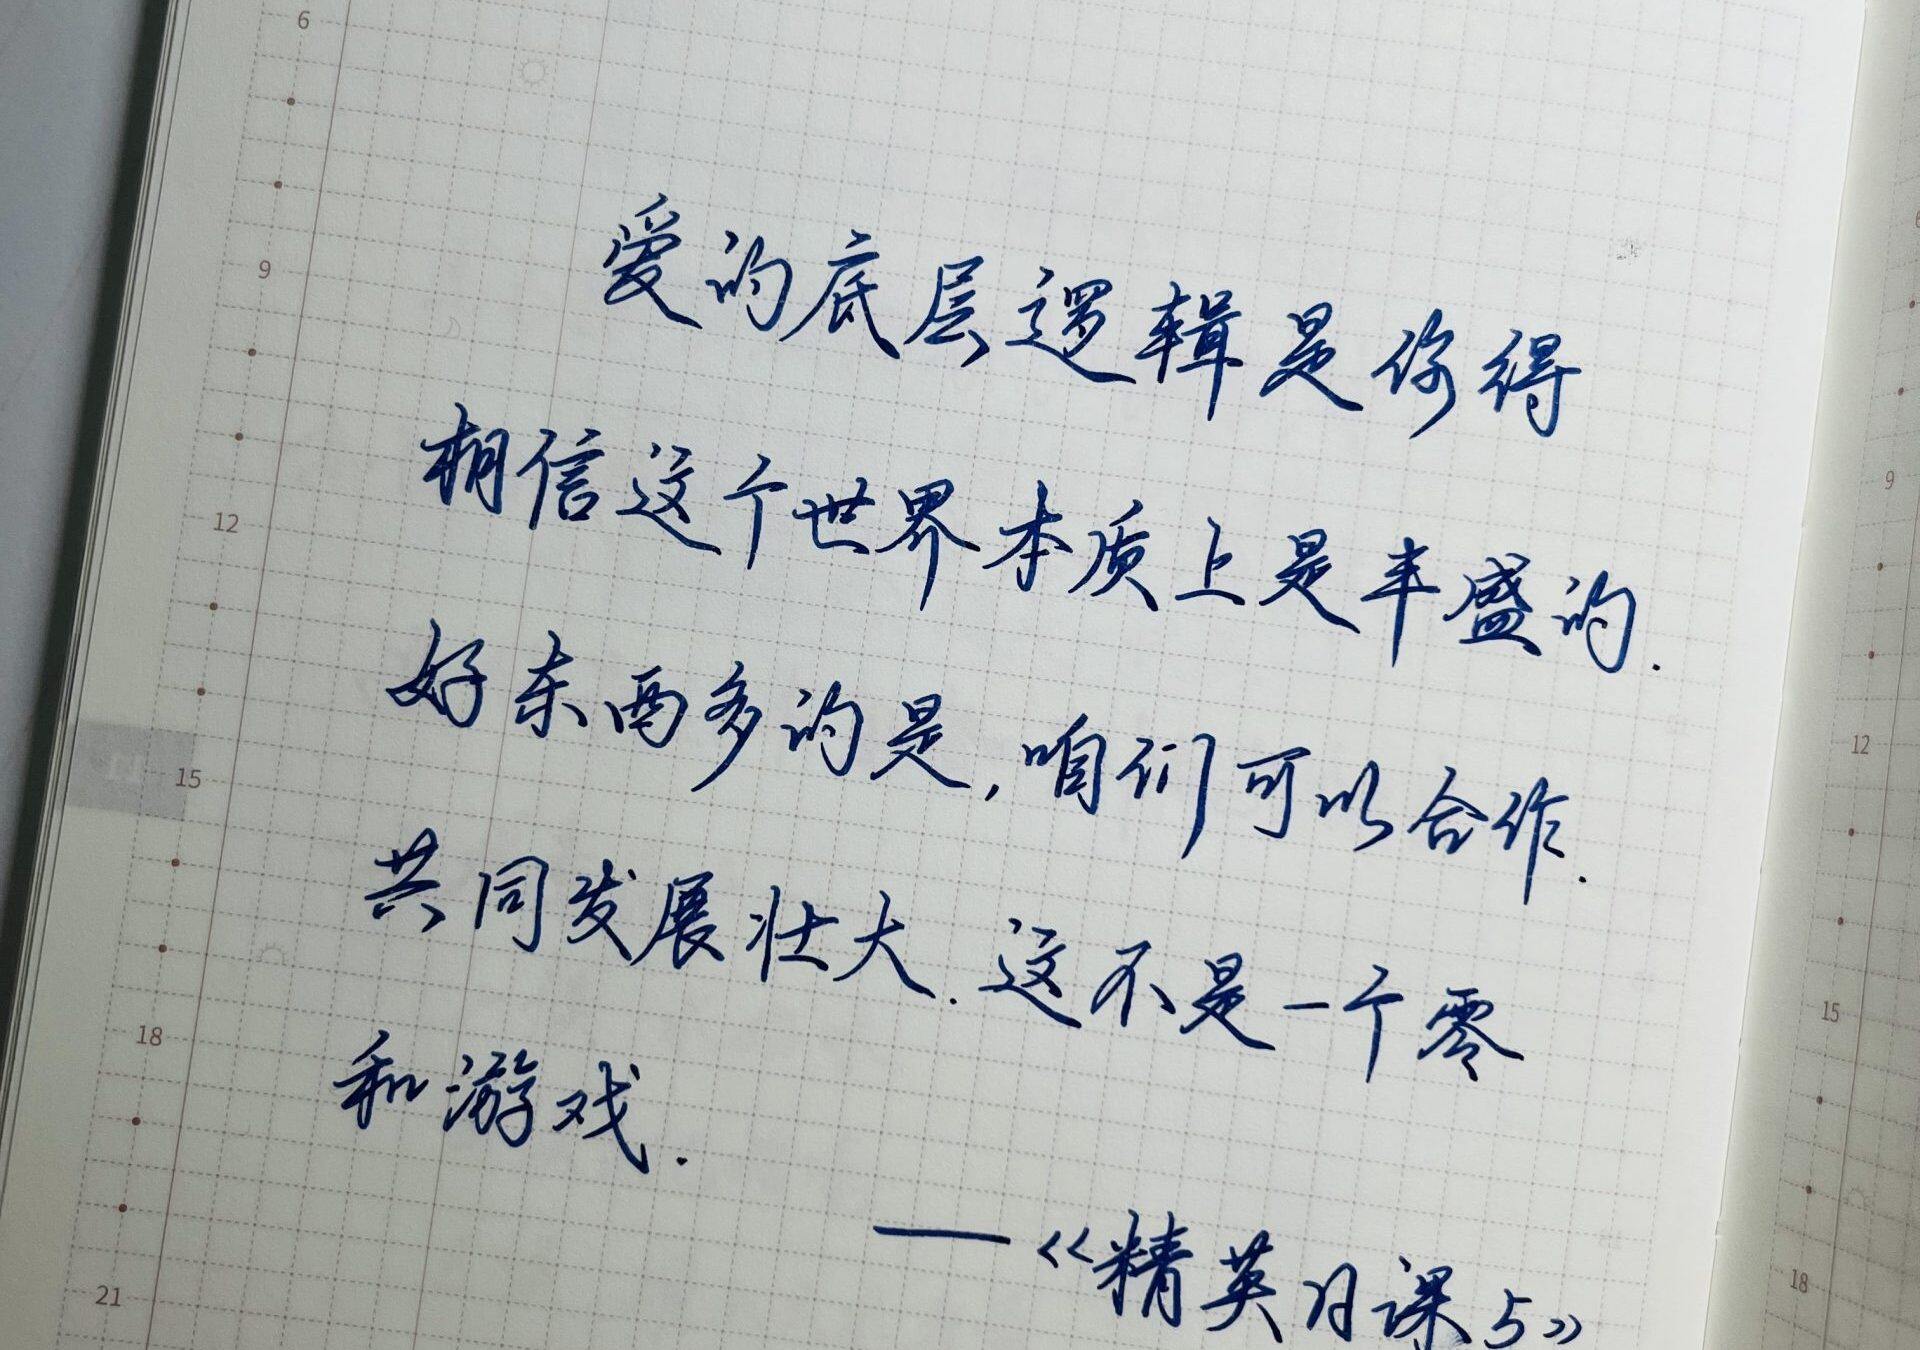 6
9
12
15
18
21
爱的底层逻辑是你得
相信这个世界本质上是丰盛的.
好东西多的是,咱们可以合作.
共同发展壮大.这不是一个零
和游戏.
——《精英日课5》
9
12
15
18